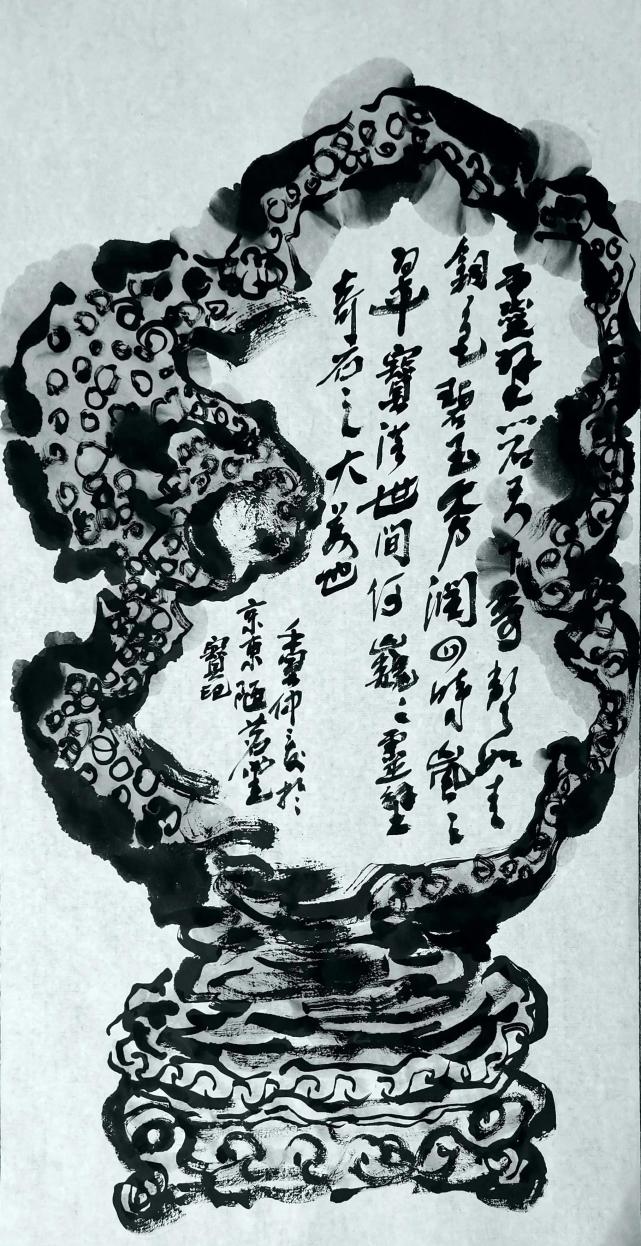 靈璧一石天下奇聲如青
銅色碧玉秀潤四時嵐々
翠寶落世間何巍々靈璧
奇石之大美也
壬寅仲夏於
京東陋茗堂
寶記